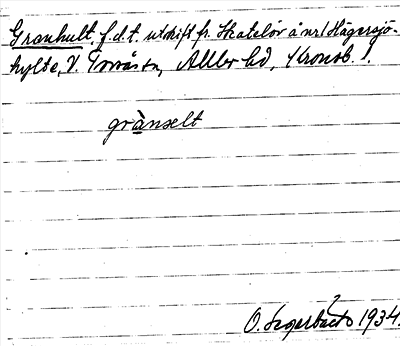 Granhult, f.d.t. utskift fr. Skatelöv å nr 1 Hägersjö-
hylte, V. Torsås sn, Allbo hd, Kronob. l.
grànselt
O. Segerbäck 1934.